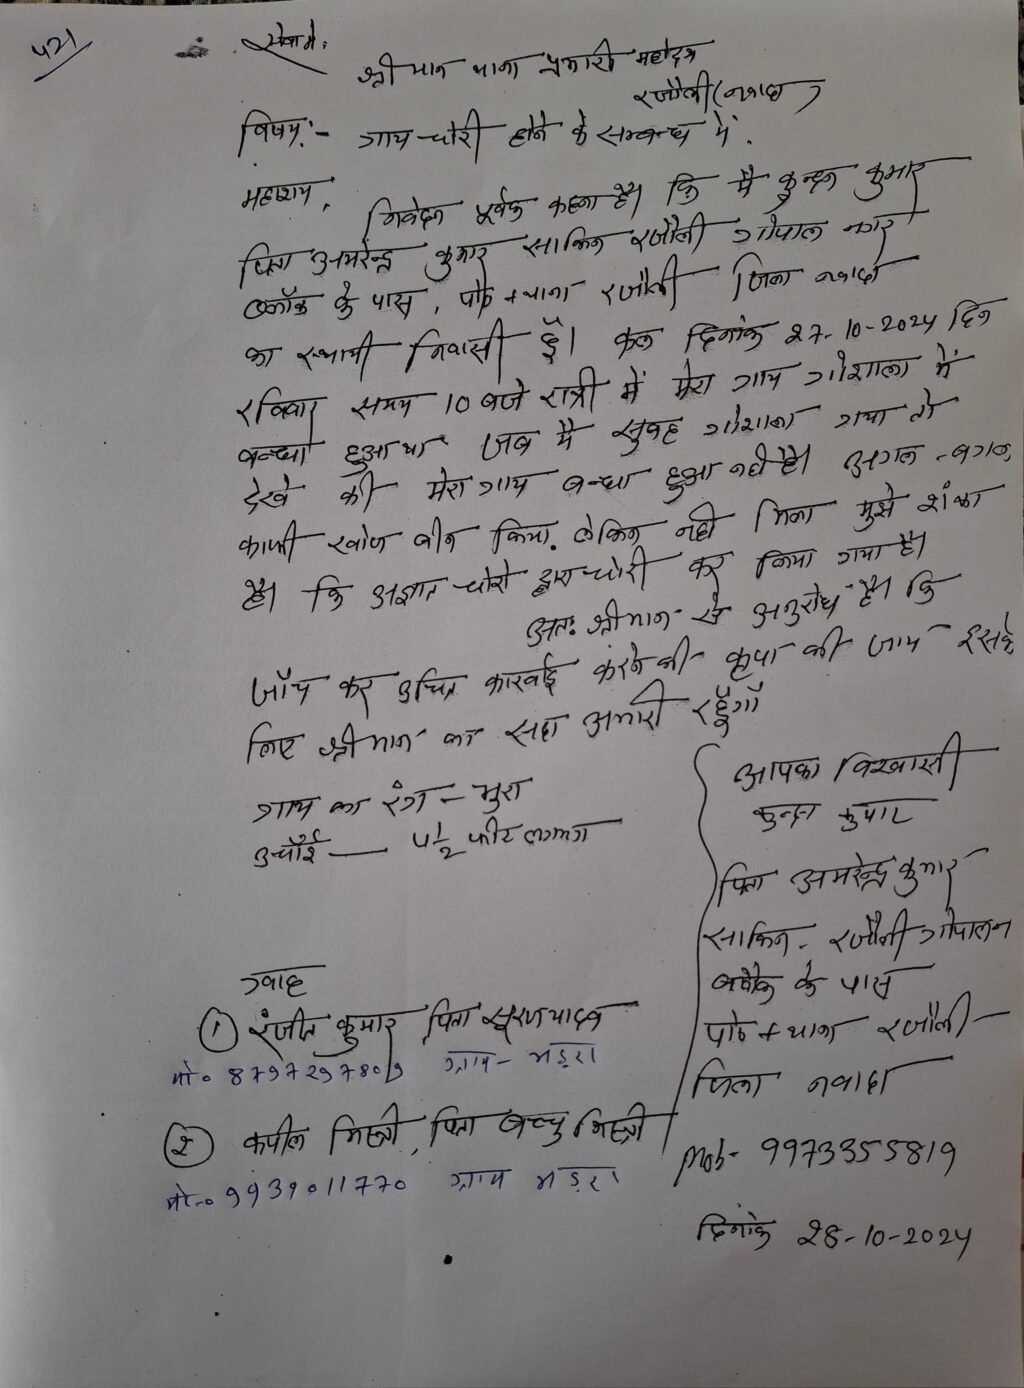 421
सेवा में,
श्रीमान थाना प्रभारी महोदय
रजौली (नवादा)
विषय:- गाय चोरी होने के सम्बन्ध में.
महाशय,
निवेदन पूर्वक कहना है। कि मै कुन्दन कुमार
पिता अमरेन्द्र कुमार साकिन रजौली गोपाल नगर
ब्लॉक के पास, पो० + थाना रजौली जिला नवादा
का स्थायी निवासी हूँ। कल दिनांक 27-10-2024 दिन
रविवार समय 10 बजे रात्री में मेरा गाय गोशाला में
बन्धा हुआ था जब मै सुबह गोशाला गया तो
देखे की मेरा गाय बन्धा हुआ नही है। अगल-बगल
काफी खोज बीन किया. लेकिन नही मिला मुझे शंका
है। कि अज्ञात चोरो द्वारा चोरी कर लिया गया है।
अतः श्रीमान से अनुरोध है। कि
जाँच कर उचित कारवाई करने की कृपा की जाय इसके
लिए श्रीमान का सदा अभारी रहूँगाँ
गाय का रंग - भुरा
उचाँई — 4 1/2 फीट लगभग
आपका विश्वासी
कुन्दन कुमार
पिता अमरेन्द्र कुमार
साकिन - रजौली गोपालन
ब्लौक के पास
पो० + थाना रजौली
जिला नवादा
Mob- 9973355819
दिनांक 28-10-2024
गवाह
① रंजीत कुमार, पिता सुरज यादव
मो० 8797297809 ग्राम - भड़रा
② कपील मिस्त्री, पिता बच्चु मिस्त्री
मो० 9939011770 ग्राम भड़रा